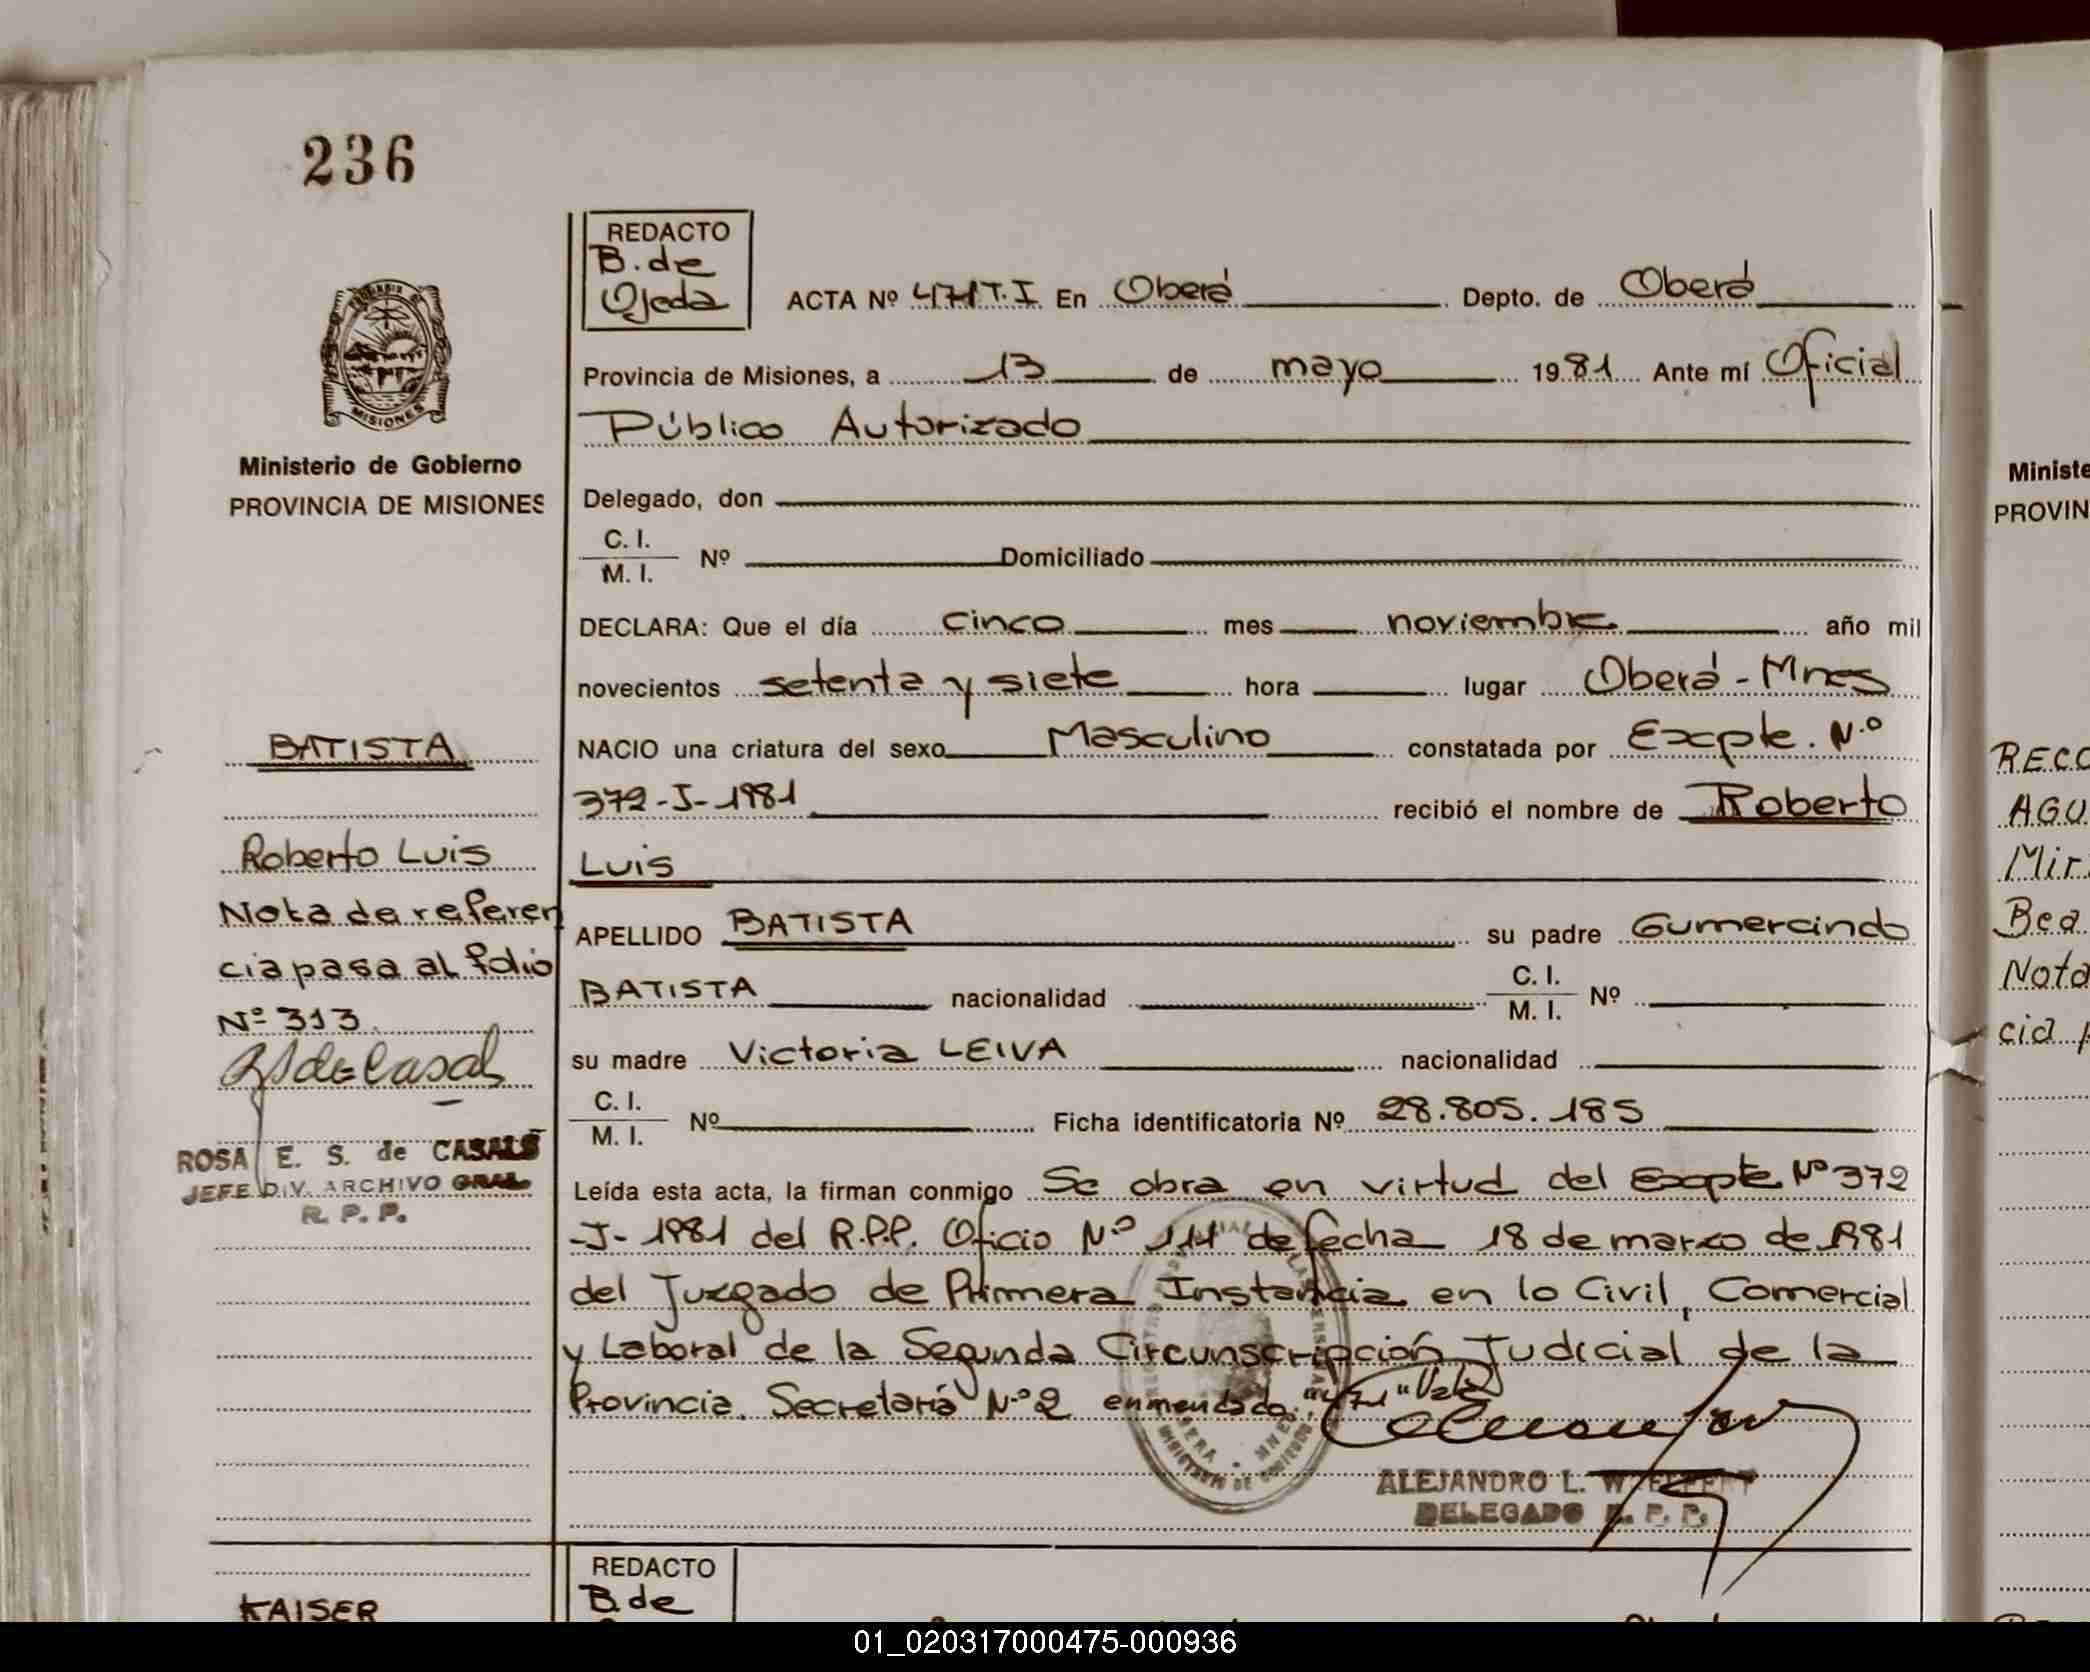 236
REDACTO
B. de
Ojeda
ACTA Nº 471 T.I. En Oberá Depto. de Oberá
Provincia de Misiones, a 13 de mayo 1981 Ante mí Oficial
Público Autorizado
MISIONES
Ministerio de Gobierno
PROVINCIA DE MISIONES
Delegado, don
C. I.
M. I. Nº Domiciliado
DECLARA: Que el día cinco mes noviembre año mil
novecientos setenta y siete hora lugar Oberá - Mnes
NACIO una criatura del sexo Masculino constatada por Expte. N.º
372-J-1981 recibió el nombre de Roberto
Luis
APELLIDO BATISTA su padre Gumercindo
BATISTA nacionalidad C. I.
M. I. Nº
su madre Victoria LEIVA nacionalidad
C. I.
M. I. Nº Ficha identificatoria Nº 28.805.185
Leída esta acta, la firman conmigo Se obra en virtud del Expte Nº 372
-J- 1981 del R.P.P. Oficio Nº 114 de fecha 18 de marzo de 1981
del Juzgado de Primera Instancia en lo Civil, Comercial
y Laboral de la Segunda Circunscripción Judicial de la
Provincia. Secretaría N.º 2 enmendado: "471" Vale
ALEJANDRO L.
DELEGADO R. P. P.
BATISTA
Roberto Luis
Nota de referen
cia pasa al folio
Nº 313
ROSA E. S. de CASALS
JEFE DIV. ARCHIVO GRAL
R. P. P.
KAISER
REDACTO
B. de
Ministe
PROVIN
RECO
AGU
Mir
Bea
Nota
cia p
01_020317000475-000936